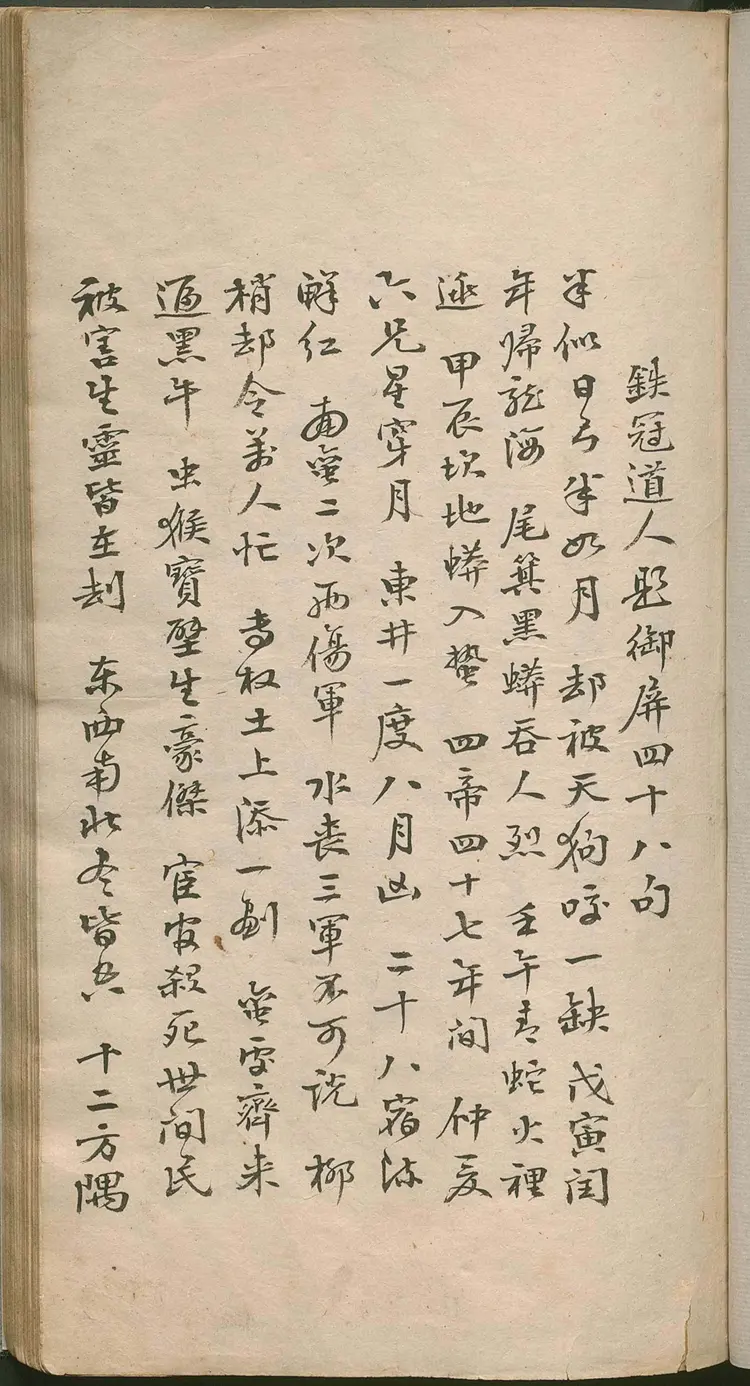 鉄冠道人題御屏四十八句
半似日兮半如月 却被天狗咬一缺 戊寅闰
年帰龍海 尾箕黑蟒吞人烈 壬午青蛇火裡
逃 甲辰坎地蟒入蟄 四帝四十七年间 仲夏
六兄星穿月 東井一度八月凶 二十八宿
鮮红 南蛮二次两傷軍 水丧三軍不可说 柳
梢却令萬人忙 木上添一 蛮 齊来
逼黑午 虫猴寶壁生豪傑 宦官殺死世间民
被害生靈皆在刦 东西南北冬皆 十二方隅